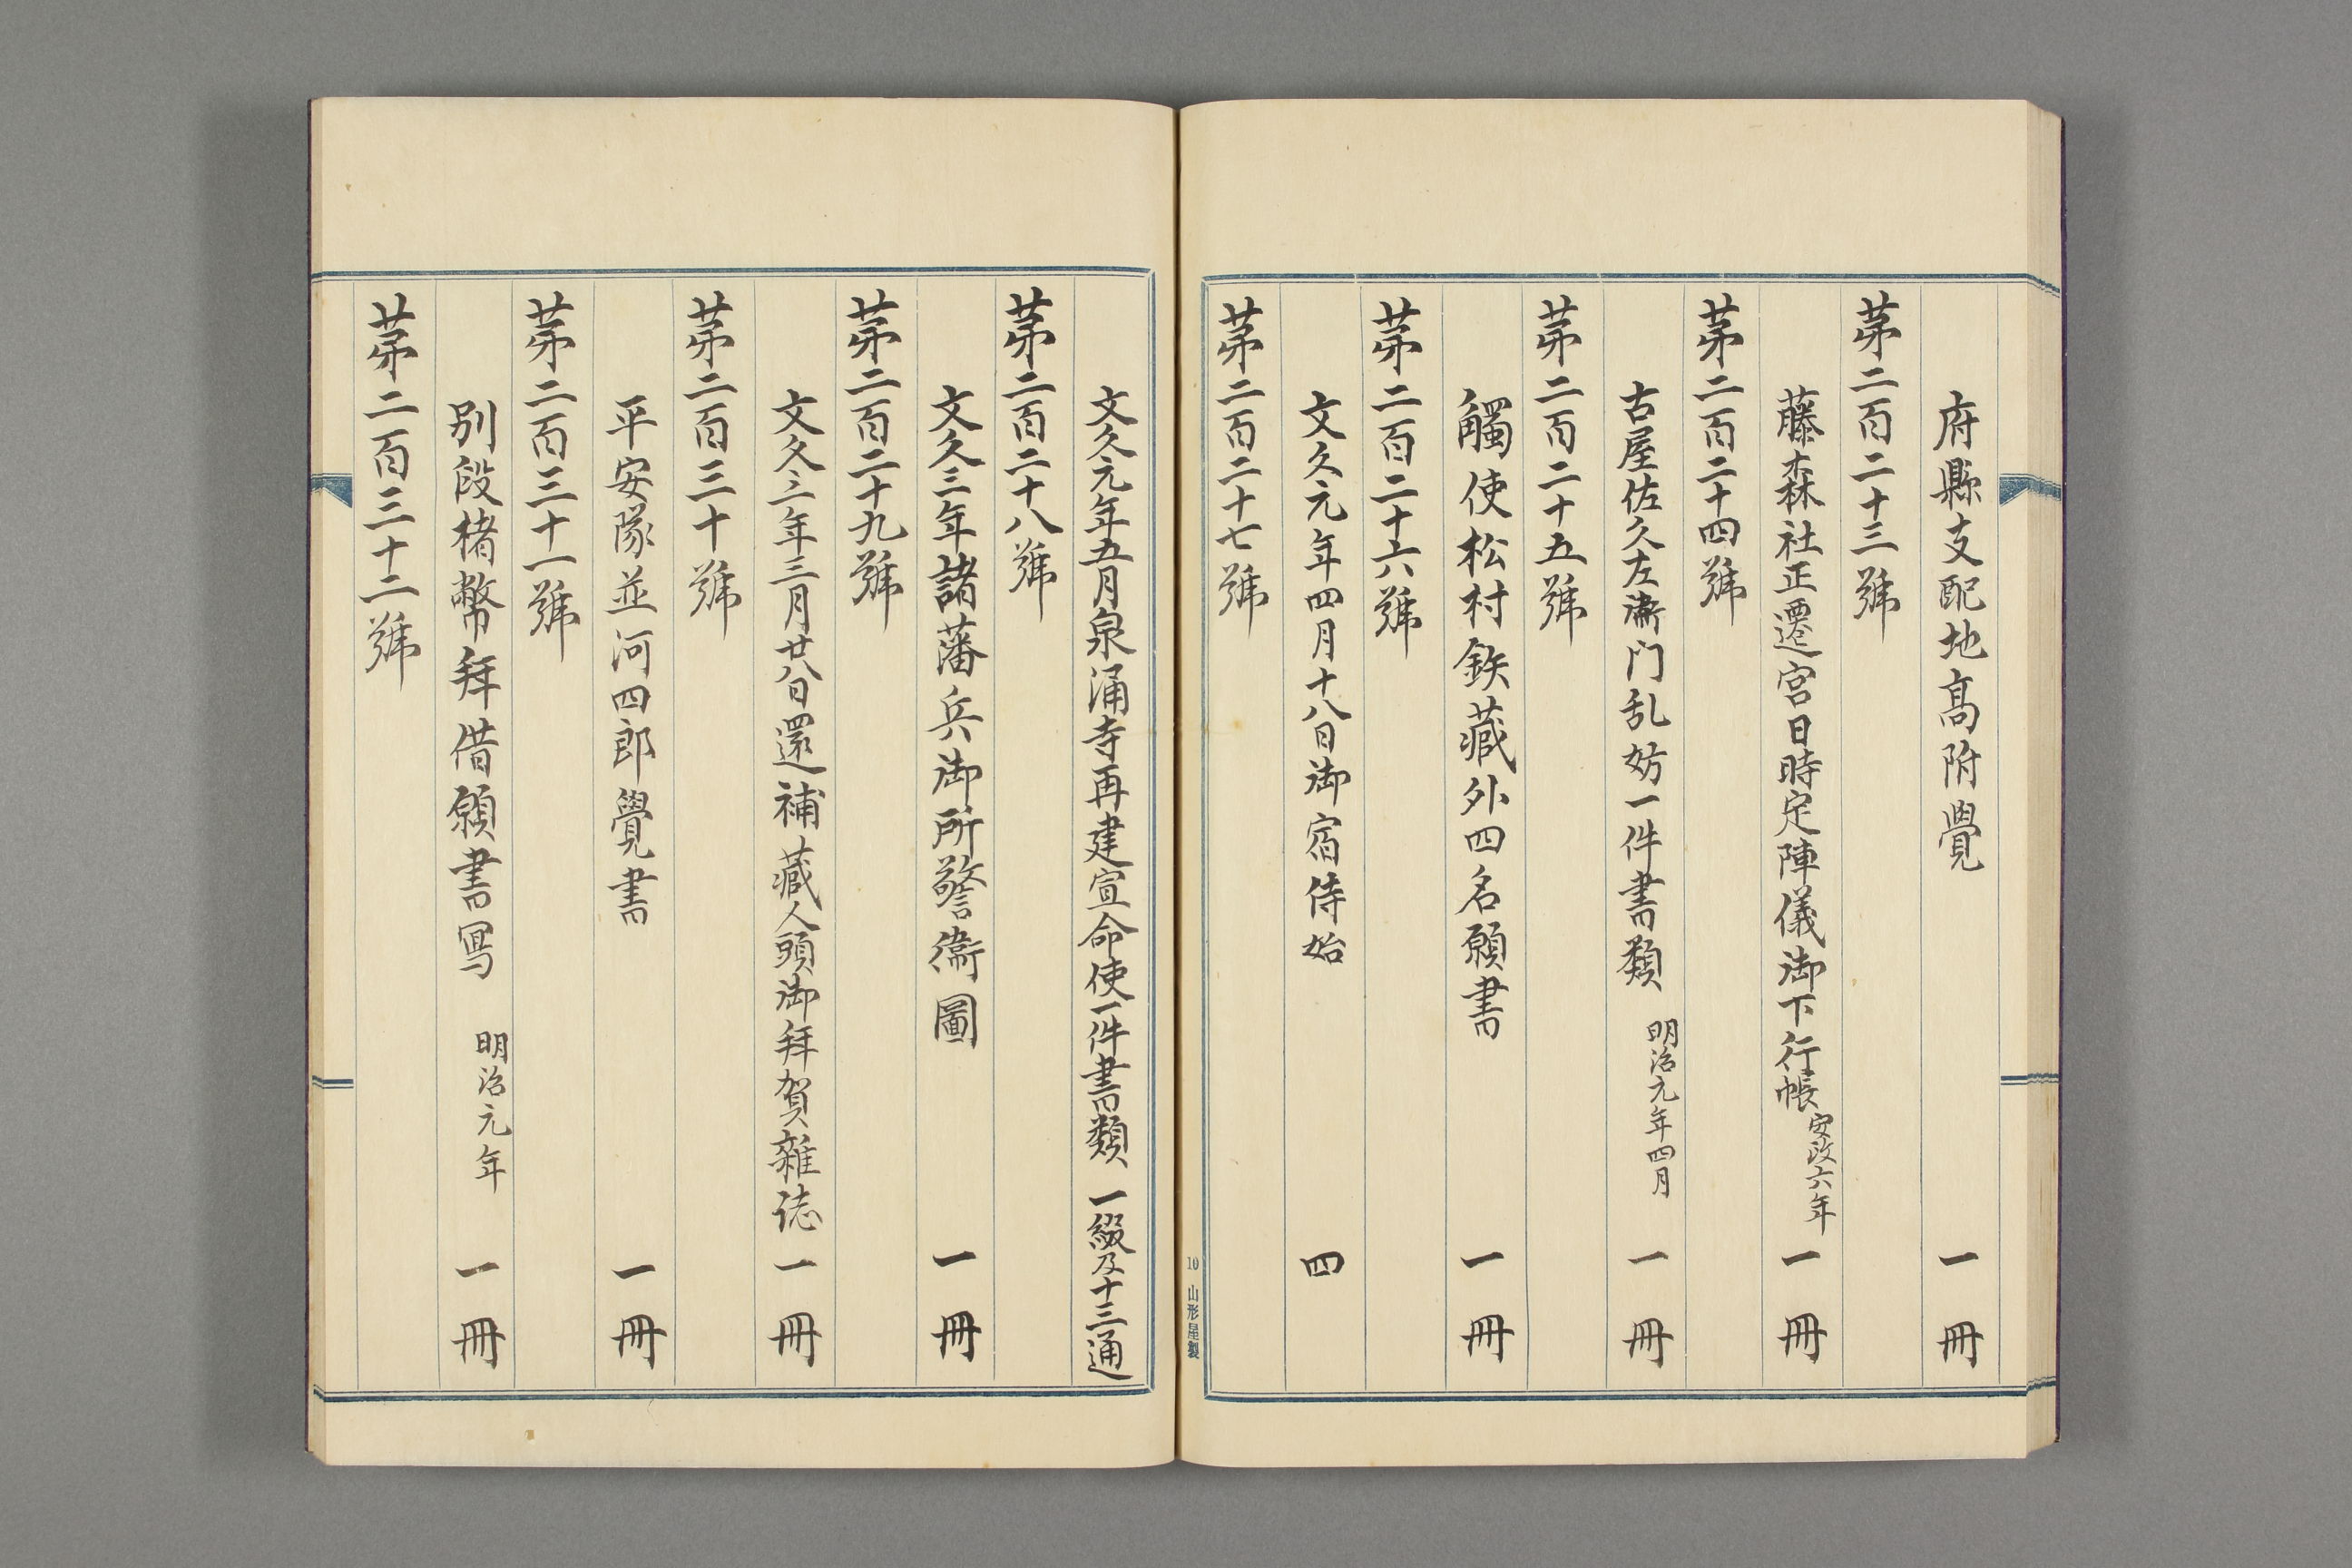 府縣支配地高附覺 一冊
第二百二十三號
藤森社正遷宮日時定陣儀御下行帳 安政六年 一冊
第二百二十四號
古屋佐久左衞门乱妨一件書類 明治元年四月 一冊
第二百二十五號
觸使松村鉃藏外四名願書 一冊
第二百二十六號
文久元年四月十八日御宿侍始 四
第二百二十七號
10 山形屋製
文久元年五月泉涌寺再建宣命使一件書類 一綴及十三通
第二百二十八號
文久三年諸藩兵御所警衞圖 一冊
第二百二十九號
文久三年三月廿八日還補藏人頭御拜賀雜誌 一冊
第二百三十號
平安隊並河四郎覺書 一冊
第二百三十一號
別段楮幣拜借願書寫 明治元年 一冊
第二百三十二號